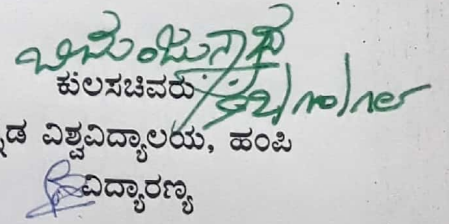 ಬಿ ಮಂಜುನಾಥ
ಕುಲಸಚಿವರು
ಡ ವಿಶ್ವವಿದ್ಯಾಲಯ, ಹಂಪಿ
ವಿದ್ಯಾರಣ್ಯ